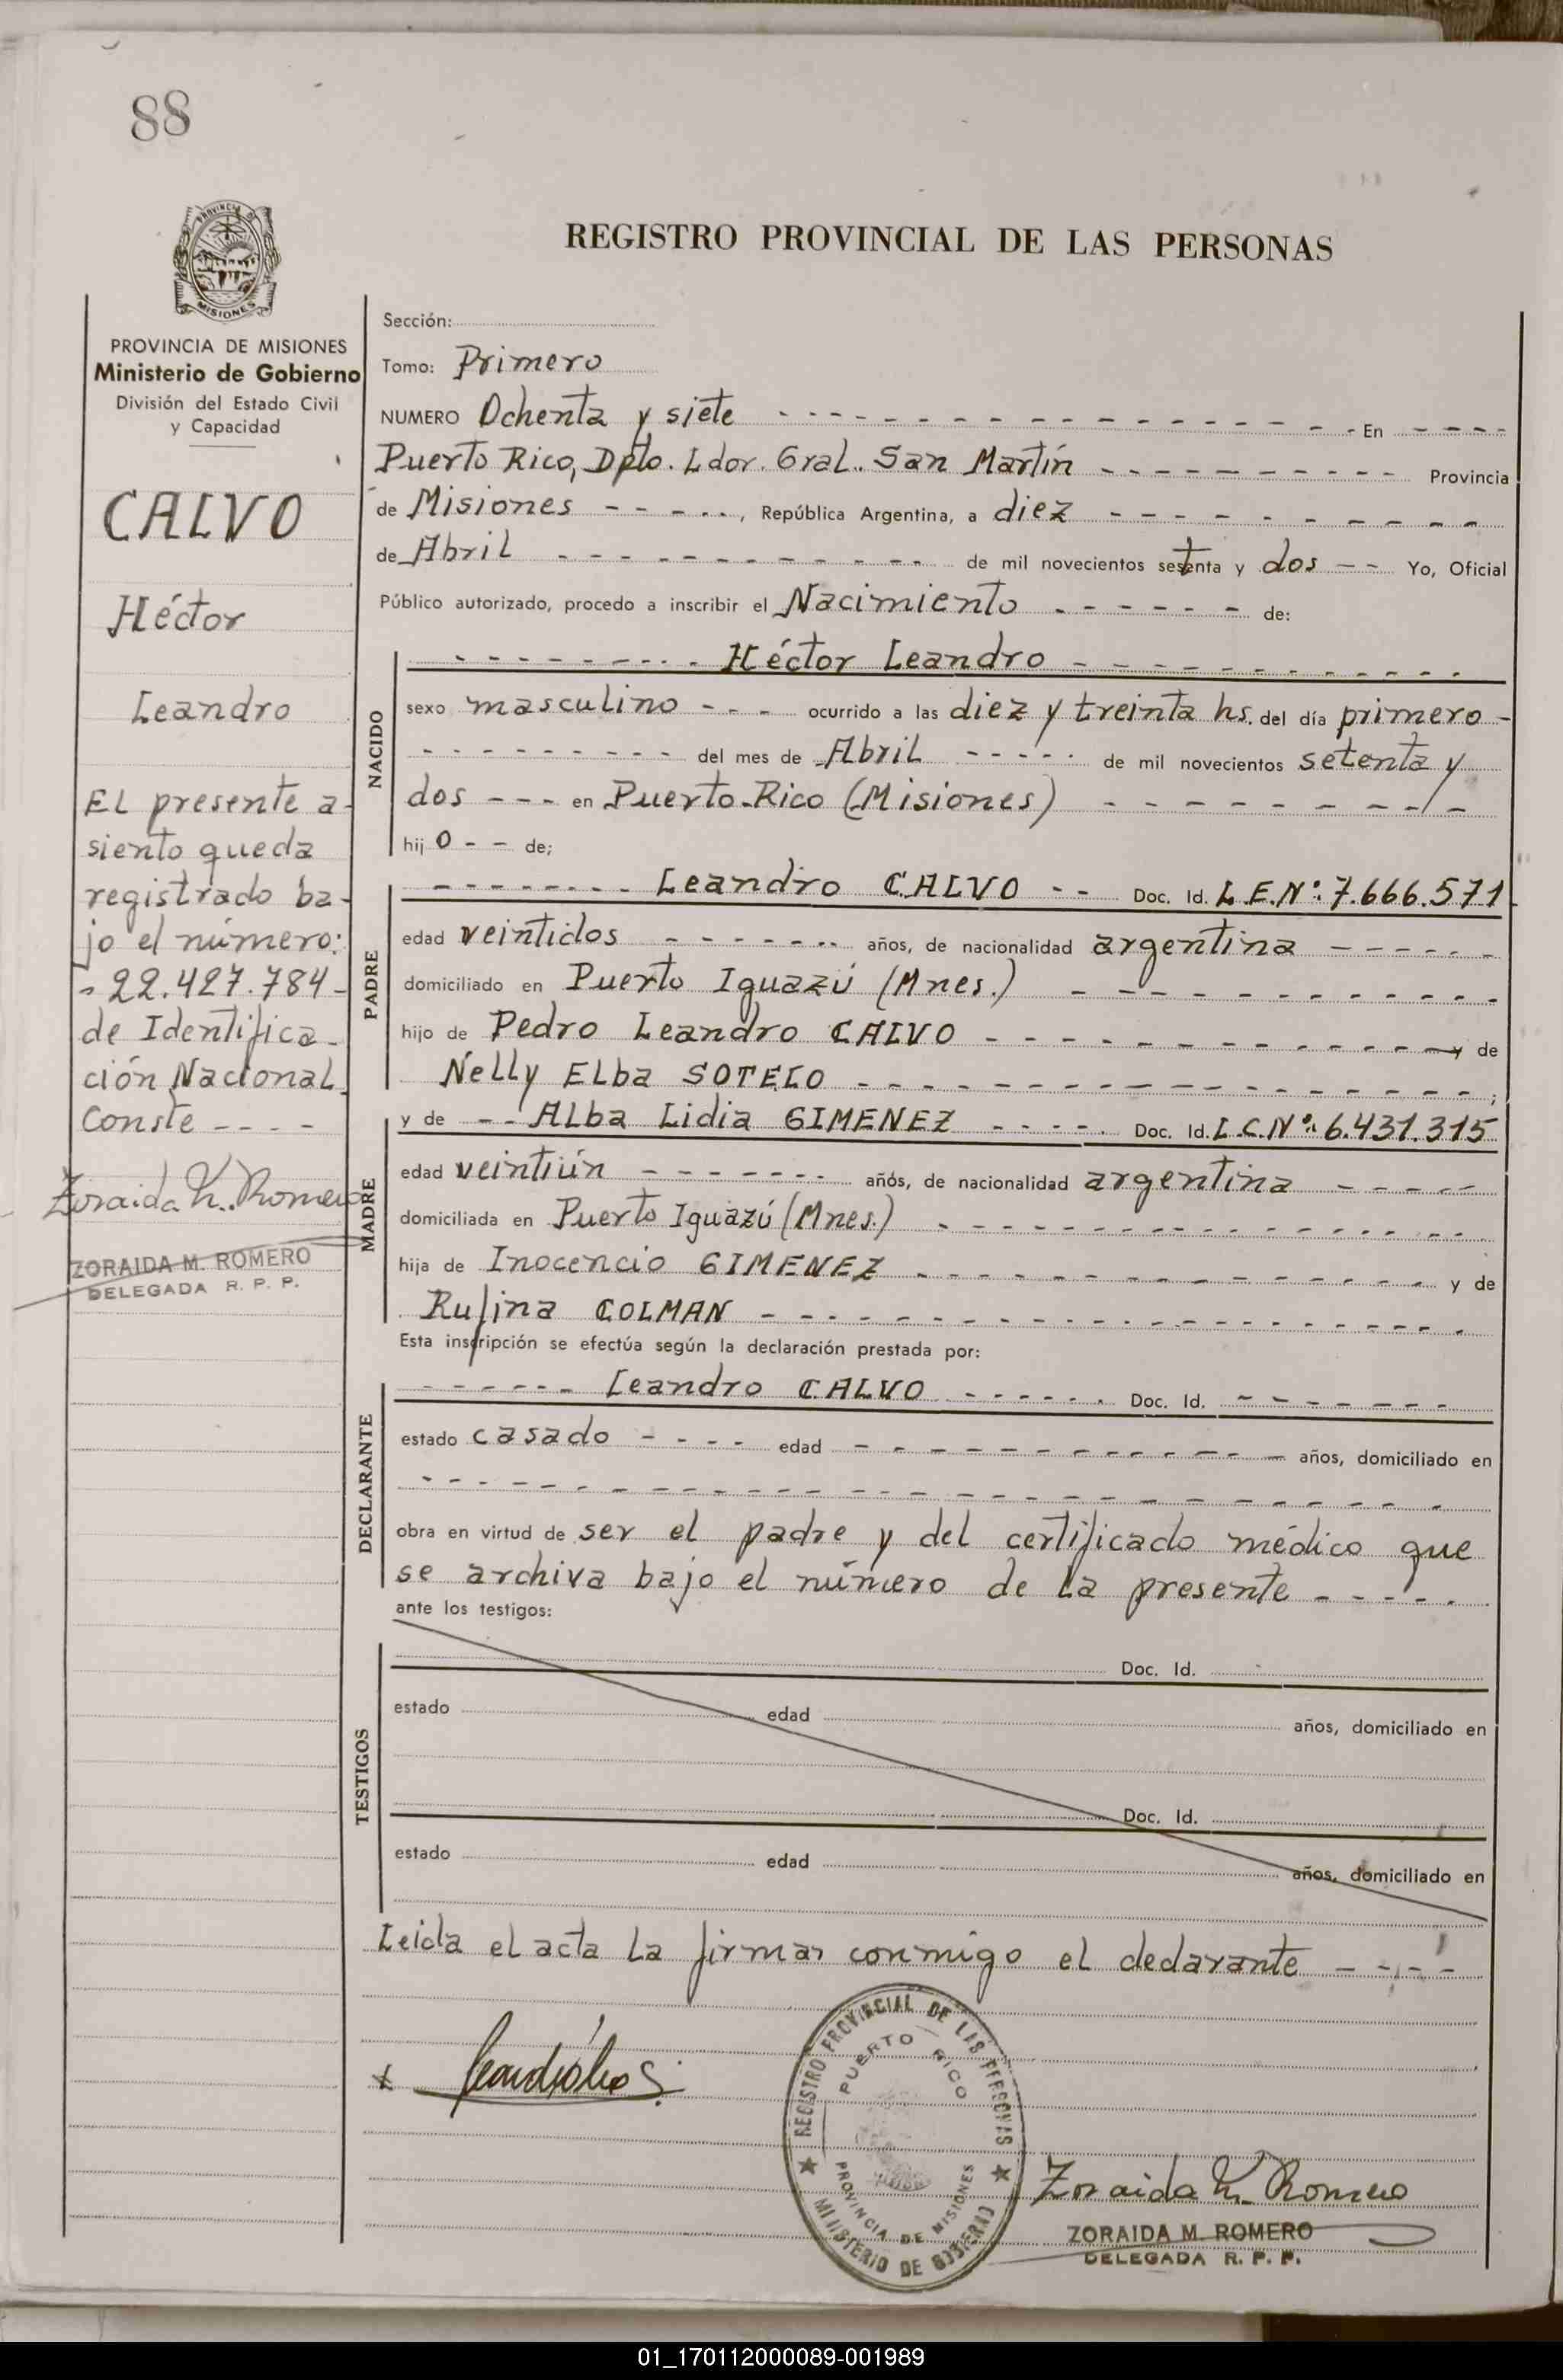 88
PROVINCIA DE
MISIONES
REGISTRO PROVINCIAL DE LAS PERSONAS
PROVINCIA DE MISIONES
Ministerio de Gobierno
División del Estado Civil
y Capacidad
CALVO
Héctor
Leandro
El presente a-
siento queda
registrado ba-
jo el número:
- 22.427.784 -
de Identifica-
ción Nacional
Conste - - - -
Zoraida M. Romero
ZORAIDA M. ROMERO
DELEGADA R. P. P.
Sección:
Tomo: Primero
NUMERO Ochenta y siete - - - En - - - -
Puerto Rico, Dpto. Ldor. Gral. San Martín - - - Provincia
de Misiones - - - - -, República Argentina, a diez - - -
de Abril - - - de mil novecientos setenta y dos - - Yo, Oficial
Público autorizado, procedo a inscribir el Nacimiento - - - - - - de:
- - - Héctor Leandro - - -
NACIDO
sexo masculino - - - ocurrido a las diez y treinta hs. del día primero -
- - - del mes de Abril - - - - - de mil novecientos setenta y
dos - - - en Puerto Rico (Misiones) - - -
hijo - - de;
PADRE
- - - Leandro CALVO - - Doc. Id. L.E.Nº: 7.666.571
edad veintidos - - - años, de nacionalidad argentina - - - - -
domiciliado en Puerto Iguazú (Mnes.) - - -
hijo de Pedro Leandro CALVO - - - y de
Nelly Elba SOTELO - - - ;
MADRE
y de - - Alba Lidia GIMENEZ - - - - - Doc. Id. L.C.Nº: 6.431.315
edad veintiún - - - años, de nacionalidad argentina - - - - -
domiciliada en Puerto Iguazú (Mnes.) - - -
hija de Inocencio GIMENEZ - - - y de
Rufina COLMAN - - -
Esta inscripción se efectúa según la declaración prestada por:
DECLARANTE
- - - - - - Leandro CALVO - - - - - - Doc. Id. - - - - - -
estado casado - - - - edad - - - años, domiciliado en
- - -
obra en virtud de ser el padre y del certificado médico que
se archiva bajo el número de la presente - - - - -
ante los testigos:
TESTIGOS
Doc. Id.
estado edad años, domiciliado en
Doc. Id.
estado edad años, domiciliado en
Leída el acta la firman conmigo el declarante - - - -
REGISTRO PROVINCIAL DE LAS PERSONAS
PUERTO RICO
PROVINCIA DE MISIONES
MINISTERIO DE GOBIERNO
Zoraida M. Romero
ZORAIDA M. ROMERO
DELEGADA R. P. P.
01_170112000089-001989